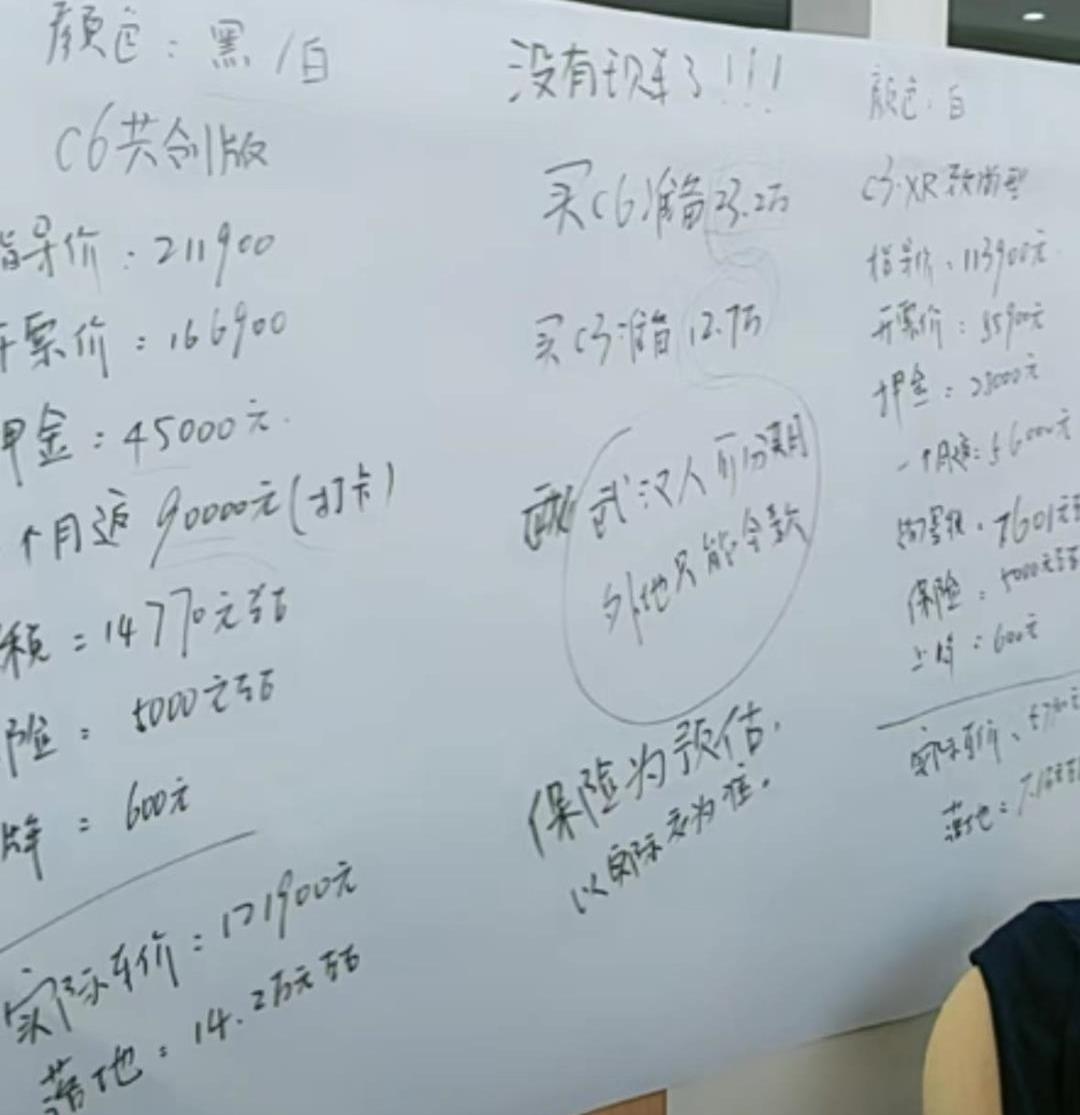 颜色：黑/白
C6共创版
指导价：211900
开票价：166900
押金：45000元
个月返90000元(打卡)
税：14770元左右
险：5000元左右
牌：600元
实际车价：121900元
落地：14.2万元左右
没有现车了!!!
买C6准备23.2万
买C3准备12.7万
武汉人可分期
外地只能全款
保险为预估.
以实际为准.
颜色：白
C3-XR致尚型
指导价：113900元
开票价：85900元
押金：28000元
一个月返：56000元
购置税：7601元
保险：5000元左右
上牌：600元
实际车价：
落地：